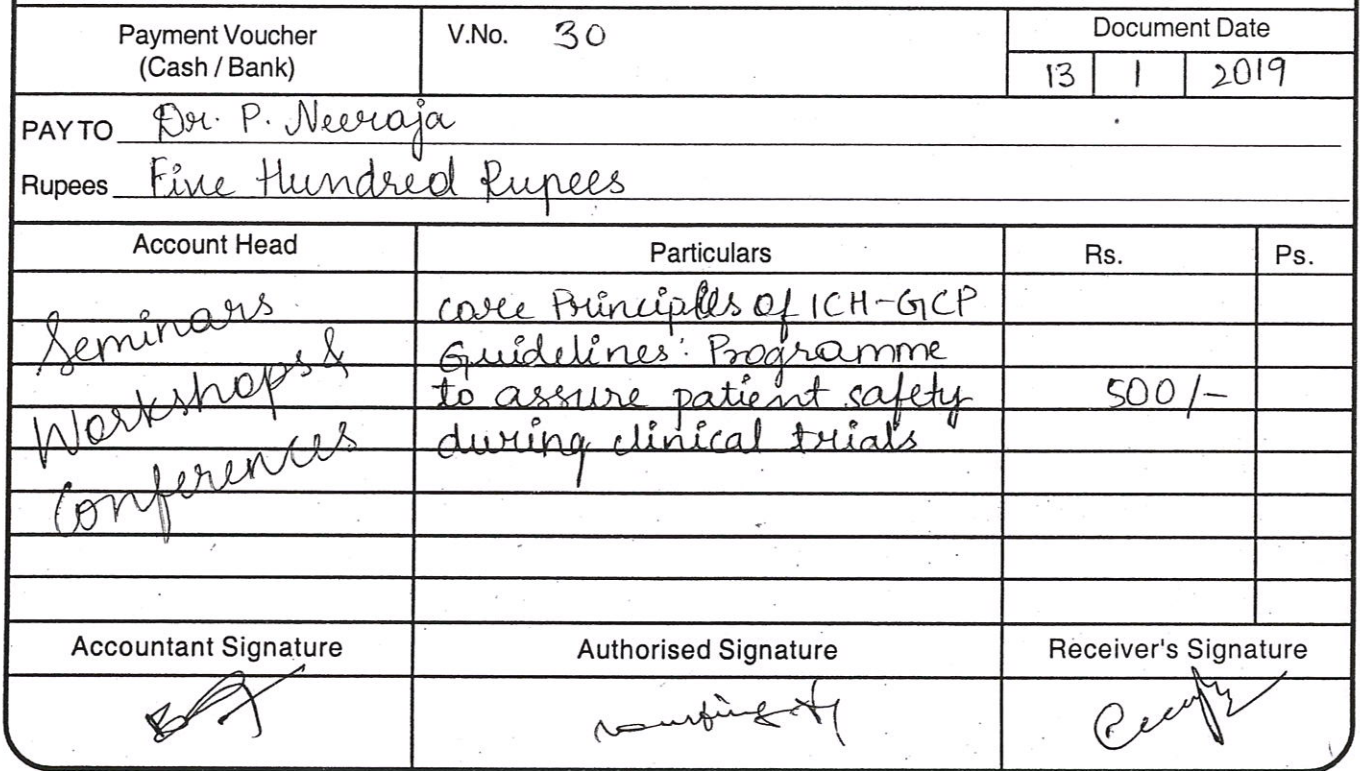 Payment Voucher
(Cash / Bank)
V.No. 30
Document Date
13 1 2019
PAY TO Dr. P. Neeraja
Rupees Five Hundred Rupees
Account Head Particulars Rs. Ps.
Seminars
Workshops &
Conferences
core Principles of ICH-GCP
Guidelines: Programme
to assure patient safety
during clinical trials
500/-
Accountant Signature Authorised Signature Receiver's Signature